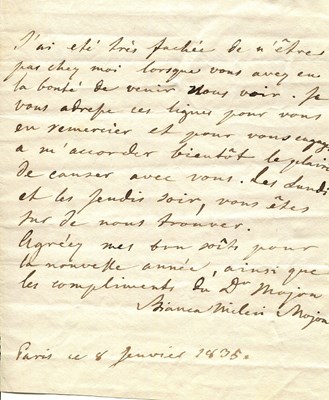 J'ai eté très fachée de n'être
pas chez moi lorsque vous avez eu
la bonté de venir nous voir. Je
vous adresse ces lignes pour vous
en remercier et pour vous engager
a m'accorder bientôt le plaisir
de causer avec vous. Les Lundi
et les Jeudis soir, vous êtes
sur de nous trouver.
Agréez mes bon soûts pour
la nouvelle année, ainsi que
les compliments du Dr Mojon
Bianca Milesi Mojon
Paris ce 8 Janvier 1835.